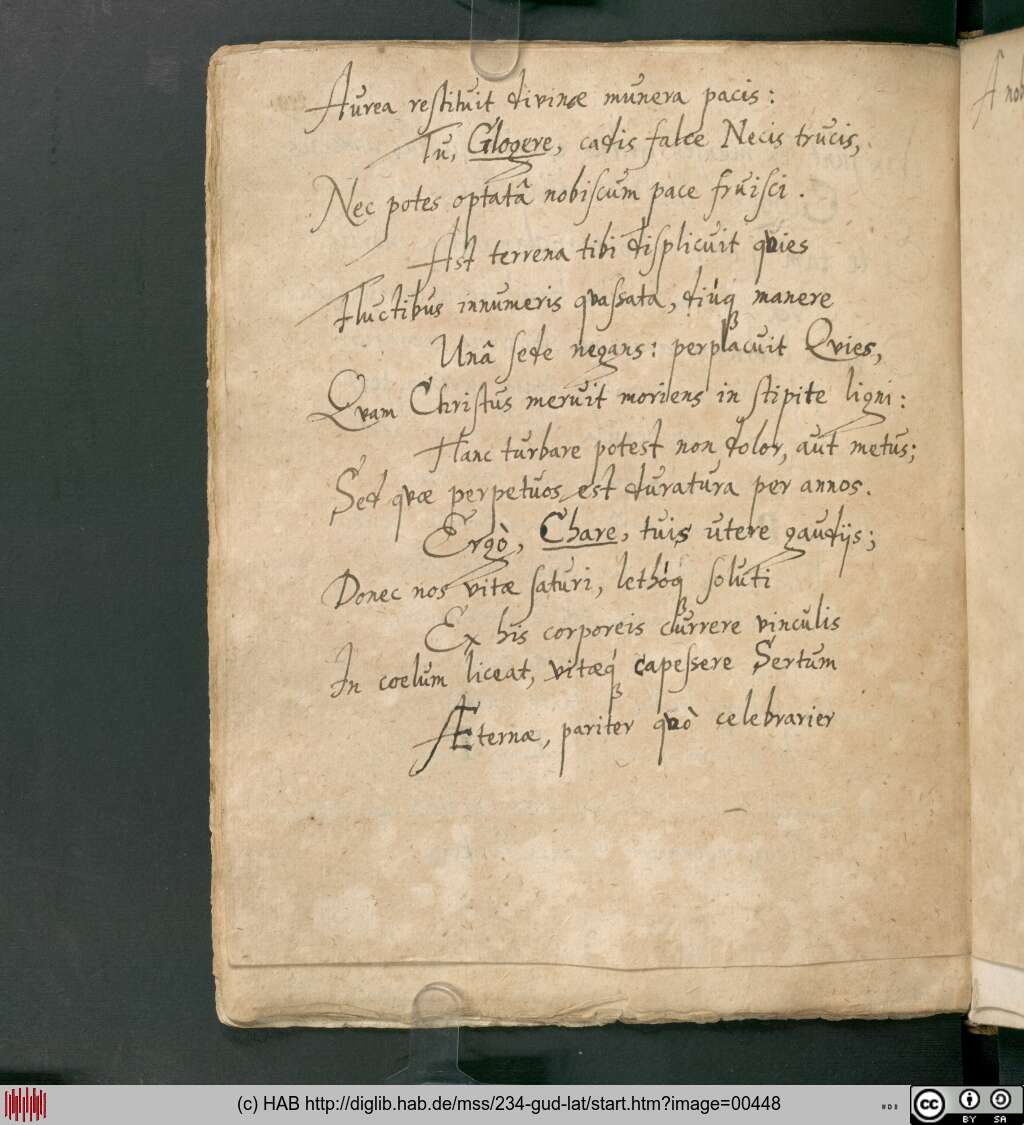 Aurea restituit divinæ munera pacis:
Tu, Glogere, cadis falce Necis trucis,
Nec potes optatâ nobiscum pace fruisci.
Ast terrena tibi displicuit qvies
Fluctibus innumeris qvassata, diúq manere
Unâ sede negans: perplacuit Qvies,
Qvam Christus meruit moriens in stipite ligni:
Hanc turbare potest non dolor, aut metus;
Sed qvæ perpetuos est duratura per annos.
Ergò, Chare, tuis utere gaudijs;
Donec nos vitæ saturi, lethóq soluti
Ex his corporeis currere vinculis
In coelum liceat, vitæq́ capessere Sertum
Æternæ, pariter qvò celebrarier
(c) HAB http://diglib.hab.de/mss/234-gud-lat/start.htm?image=00448
cc BY SA